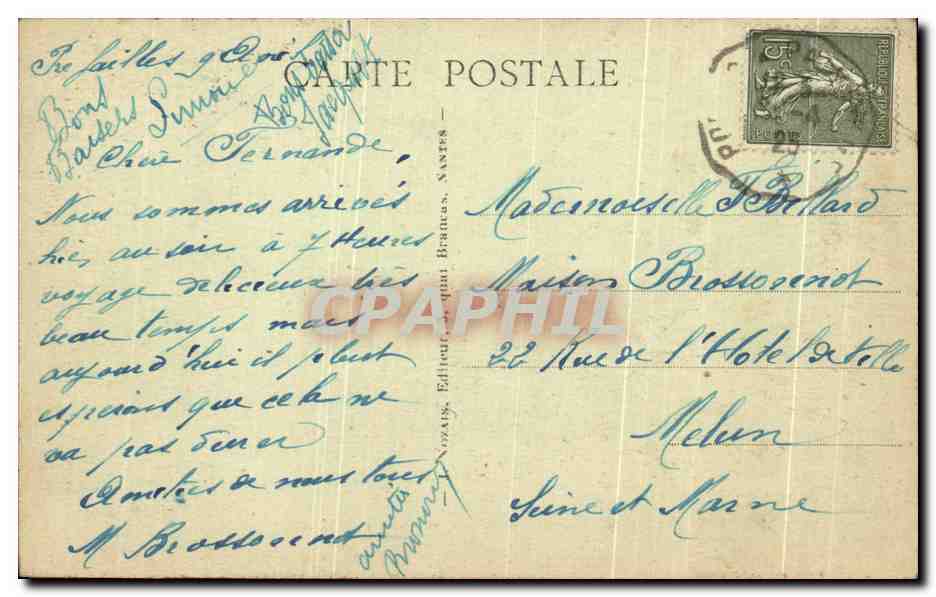 CARTE POSTALE
Préfailles 9 Août
Bons
Baisers Simone
Bonjour
Jacquot
Chère Fernande,
Nous sommes arrivés
hier au soir à 7 Heures
voyage delicieux très
beau temps mais
aujourd'hui il pleut
esperons que cela ne
va pas durer
Amitiés de nous tous
M Brossonnot
amitiés
Editeur, quai Brancas, NANTES
REPUBLIQUE FRANÇAISE
15c
POSTES
25
Mademoiselle F Boillard
Maison Brossonnot
22 Rue de l'Hotel de Ville
Melun
Seine et Marne
CPAPHIL